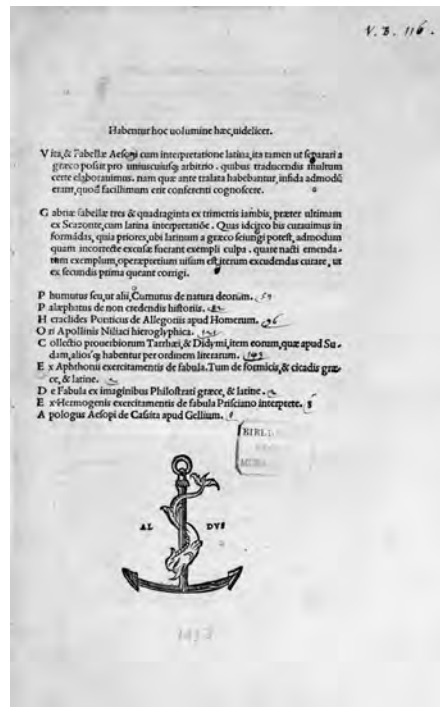 V. B. 116.
Habentur hoc uolumine hæc, uidelicet.
Vita, & Fabellæ Aesopi cum interpretatione latina, ita tamen ut separari a
græco possit pro uniuscuiusq; arbitrio. quibus traducendis multum
certe elaborauimus. nam quæ ante tralata habebantur, infida admodū
erant, quod facillimum erit conferenti cognoscere.
Gabriæ fabellæ tres & quadraginta ex trimetris iambis, præter ultimam
ex Scazonte, cum latina interpretatiōe. Quas idcirco bis curauimus in
formādas, quia priores, ubi latinum a græco seiungi potest, admodum
quam incorrecte excusæ fuerant exempli culpa. quare nacti emenda-
tum exemplum, operæpretium uisum est, iterum excudendas curare, ut
ex secundis prima queant corrigi.
Phurnutus seu, ut alii, Curnutus de natura deorum. 59
Palæphatus de non credendis historiis.
Heraclides Ponticus de Allegoriis apud Homerum. 96
Ori Apollinis Niliaci hieroglyphica.
Collectio prouerbiorum Tarrhæi, & Didymi, item eorum, quæ apud Su-
dam, aliosq; habentur per ordinem literarum.
Ex Aphthonii exercitamentis de fabula. Tum de formicis, & cicadis græ-
ce, & latine.
De Fabula ex imaginibus Philostrati græce, & latine.
Ex Hermogenis exercitamentis de fabula Prisciano interprete.
Apologus Aesopi de Cassita apud Gellium.
AL DVS